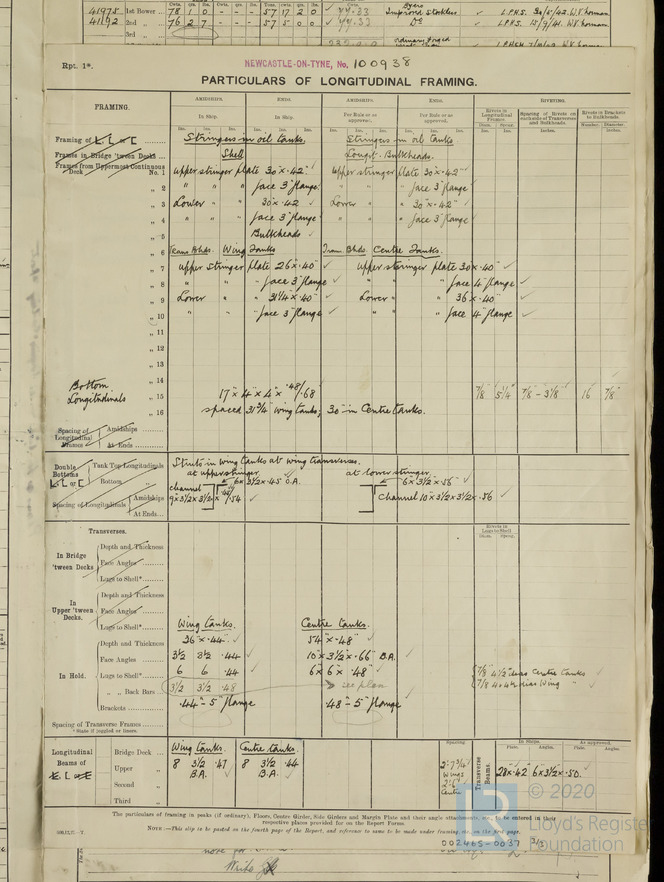 41975 1st Bower 78 1 0 - - - 57 17 2 0
41192 2nd „ 76 2 7 - - - 57 5 0 0 Do
3rd „
Rpt. 1*.
NEWCASTLE-ON-TYNE, No. 100938
PARTICULARS OF LONGITUDINAL FRAMING.
FRAMING.
AMIDSHIPS. ENDS. AMIDSHIPS. ENDS. RIVETING.
In Ship. In Ship. Per Rule or as approved. Per Rule or as approved.
Rivets in Longitudinal Frames. Spacing of Rivets on each side of Transverses and Bulkheads. Rivets in Brackets to Bulkheads.
Ins. Ins. Ins. Ins. Ins. Ins. Ins. Ins. Ins. Ins. Ins. Ins. Diam. Spcng. Inches. Number. Diameter. Inches.
Framing of L, L or [ Stringers in oil tanks. Stringers in oil tanks
Frames in Bridge 'tween Decks Shell Longit. Bulkheads.
Frames from Uppermost Continuous Deck No. 1 upper stringer plate 30"x.42" upper stringer plate 30"x.42"
„ 2 „ „ „ face 3" flange „ „ „ face 3" flange
„ 3 Lower „ 30"x.42 Lower „ 30"x.42"
„ 4 „ „ face 3" flange „ „ face 3" flange
„ 5 Bulkheads
„ 6 Trans Bhds. Wing Tanks Trans. Bhds. Centre Tanks.
„ 7 upper stringer plate 26"x.40" upper stringer plate 30x.40"
„ 8 „ „ „ face 3" flange „ „ „ face 4" flange
„ 9 Lower „ „ 31¼"x.40" Lower „ „ 36"x.40"
„ 10 „ „ „ face 3" flange „ „ „ face 4" flange
„ 11
„ 12
„ 13
„ 14
Bottom Longitudinals „ 15 17"x4"x4"x.48/.68 7/8" 5¼ 7/8 - 3 1/8" 16 7/8"
„ 16 spaced 31¾" wing tanks; 30" in Centre tanks.
Spacing of Longitudinal Frames Amidships
At Ends
Double Bottoms L, L or [ Tank Top Longitudinals Struts in wing tanks at wing transverses.
at upper stringer. at lower stringer.
Bottom „ 6x3½x.45 O.A. 6"x3½"x.56"
Spacing of Longitudinals Amidships channel 9x3½x3½x .54 Channel 10x3½x3½x.56
At Ends
Transverses.
Rivets in Lugs to Shell
Diam. Spcng.
In Bridge 'tween Decks Depth and Thickness
Face Angles
Lugs to Shell*
In Upper 'tween Decks. Depth and Thickness
Face Angles
Lugs to Shell*
Wing tanks. Centre tanks.
In Hold. Depth and Thickness 36"x.44" 54"x.48"
Face Angles 3½ 3½ .44 10"x3½"x.66" B.A.
Lugs to Shell* 6 6 .44 6"x6"x.48" 7/8 4½ dias Centre tanks
„ „ Back Bars 3½ 3½ .48 see plan 7/8 4 dias Wing „
Brackets .44"-5" flange .48"-5" flange
Spacing of Transverse Frames
* State if joggled or liners.
Longitudinal Beams of L, L or [ Bridge Deck Wing tanks. Centre tanks.
Upper „ 8 3½ .47 B.A. 8 3½ .44 B.A.
Second „
Third „
Spacing 2'-7¾" Wings 2'-6" Centre
Transverse Beams. In Ships. As approved.
Plate. Angles. Plate. Angles.
28x.42 6x3½x.50.
The particulars of framing in peaks (if ordinary), Floors, Centre Girder, Side Girders and Margin Plate and their angle attachments, &c., to be entered in their
respective places provided for on the Report Forms.
NOTE.—This slip to be pasted on the fourth page of the Report, and reference to same to be made under framing, etc. on the first page.
© 2020
Lloyd's Register
Foundation
002465-0037 3/3